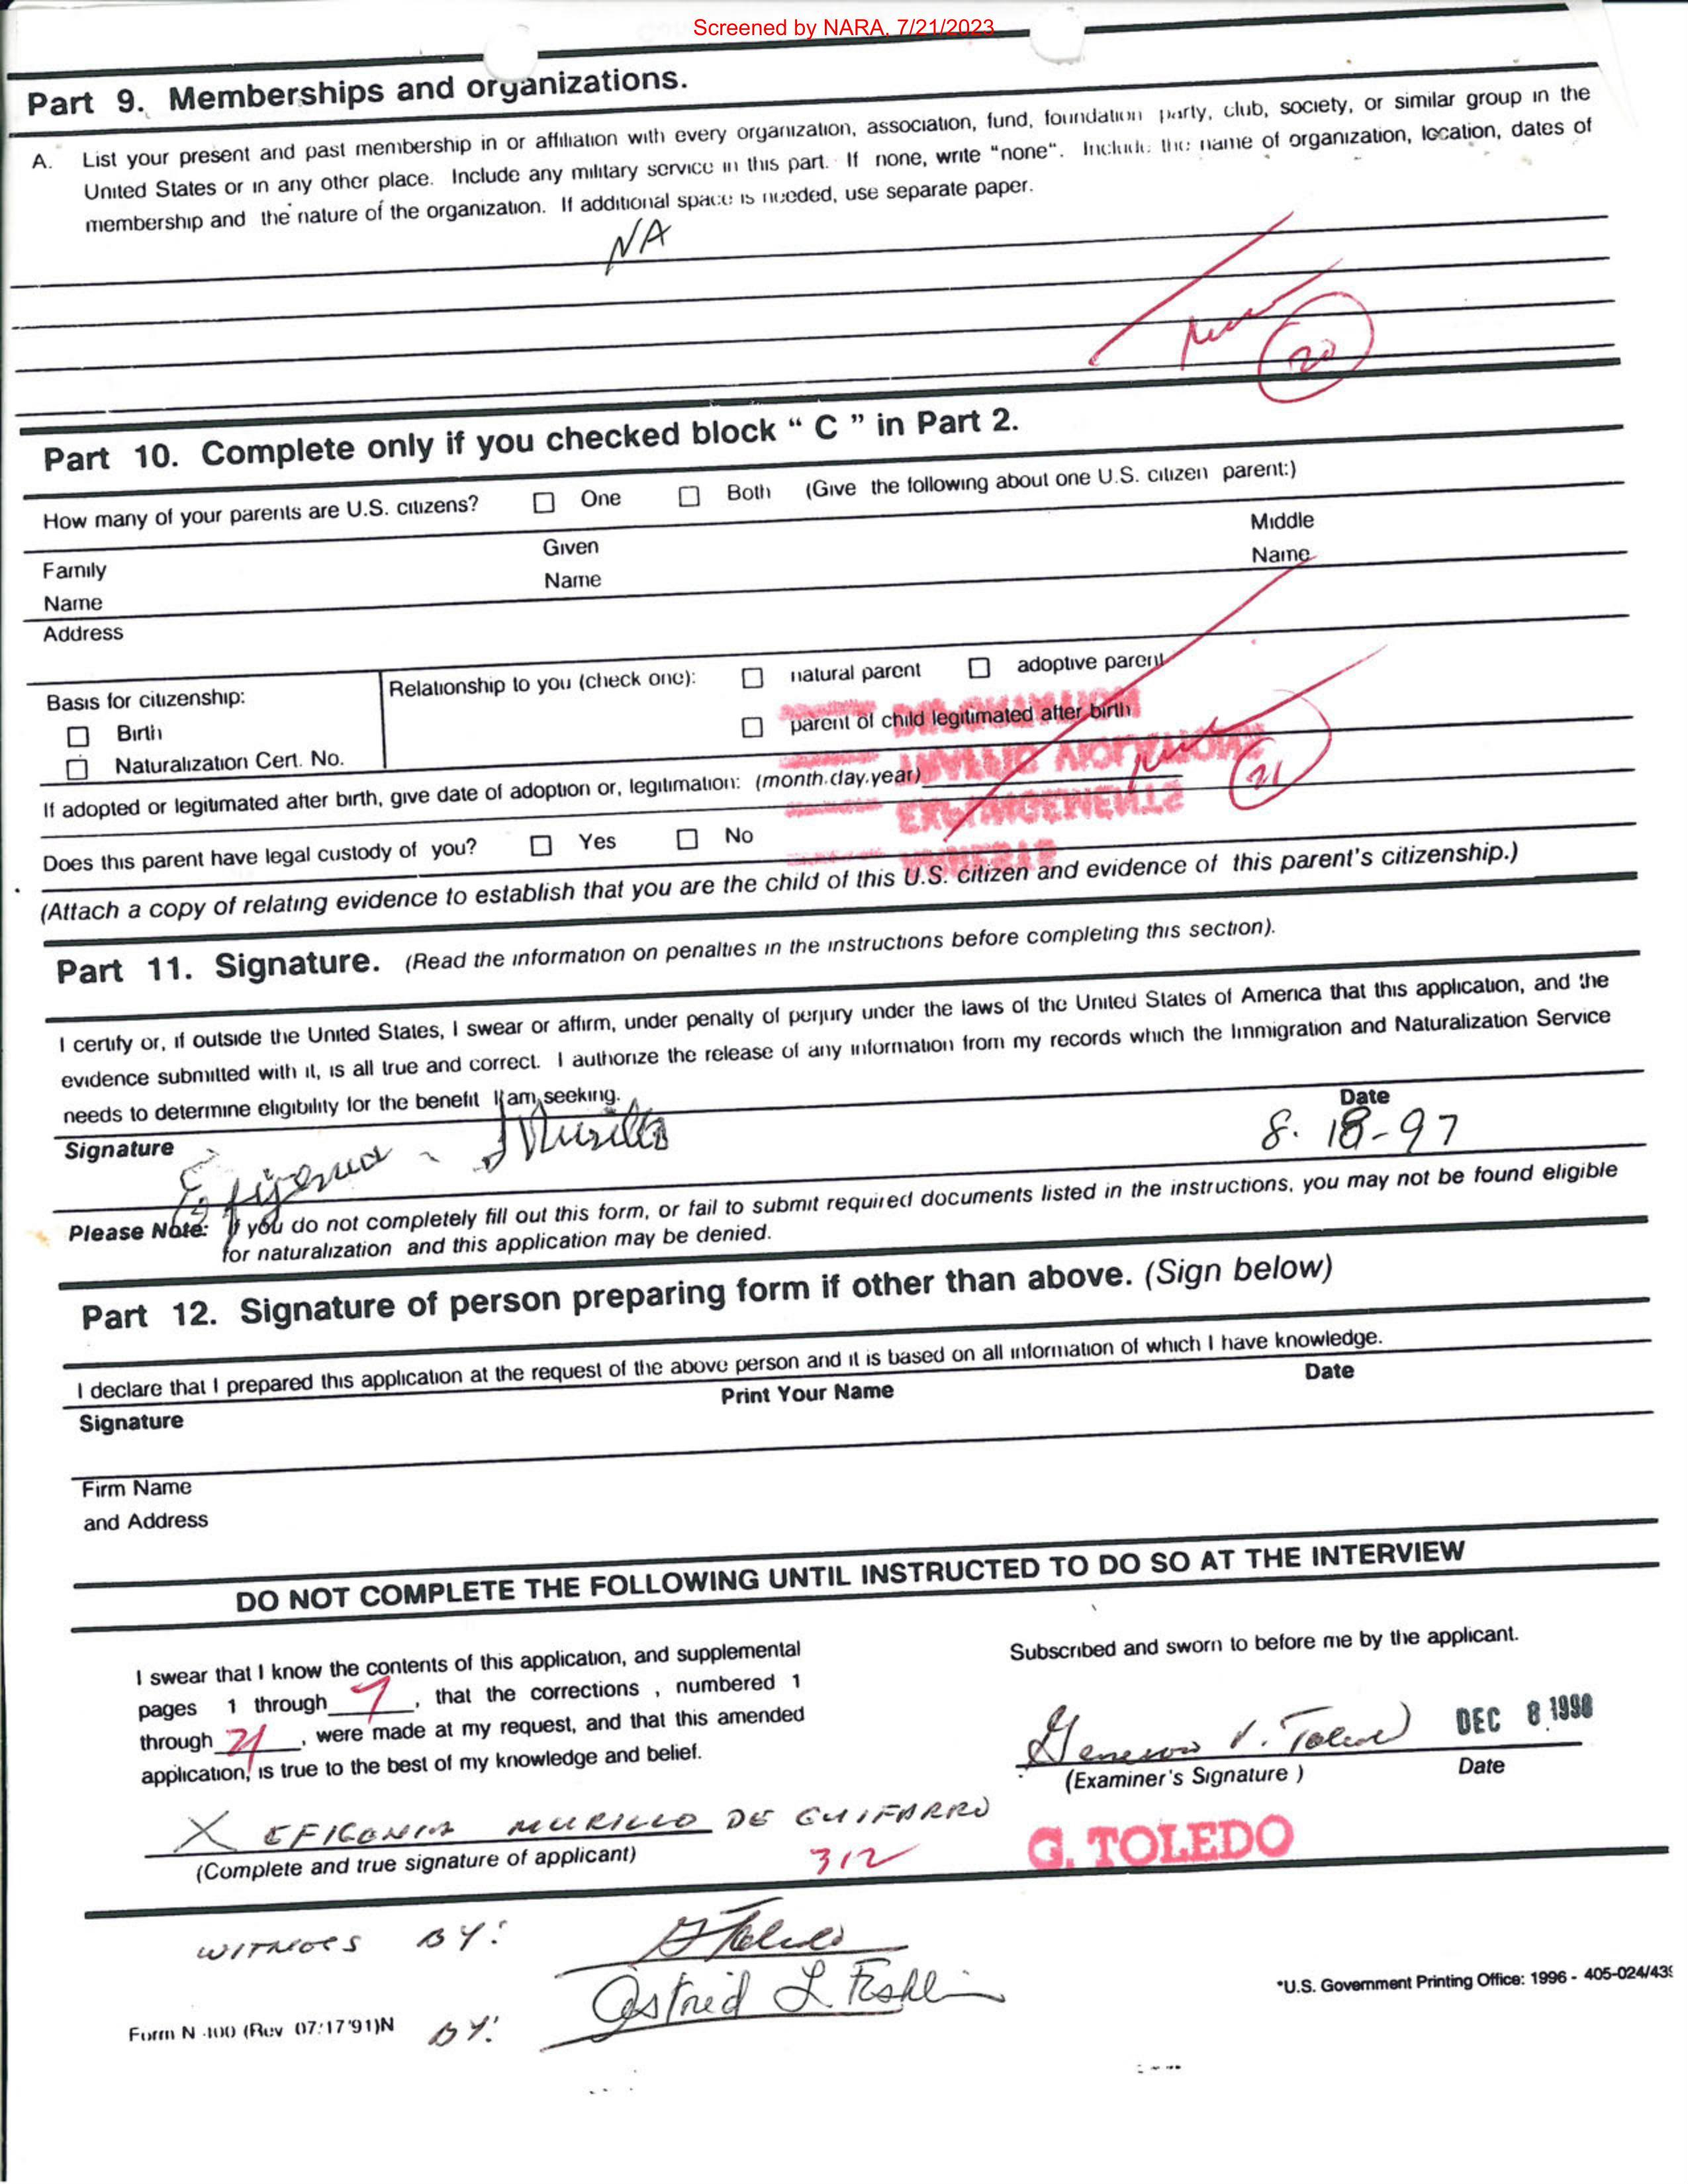 Screened by NARA, 7/21/2023
Part 9. Memberships and organizations.
A. List your present and past membership in or affiliation with every organization, association, fund, foundation party, club, society, or similar group in the
United States or in any other place. Include any military service in this part. If none, write "none". Include the name of organization, location, dates of
membership and the nature of the organization. If additional space is needed, use separate paper.
NA
20
Part 10. Complete only if you checked block " C " in Part 2.
How many of your parents are U.S. citizens? ☐ One ☐ Both (Give the following about one U.S. citizen parent:)
Family Name
Given Name
Middle Name
Address
Basis for citizenship:
☐ Birth
☐ Naturalization Cert. No.
Relationship to you (check one): ☐ natural parent ☐ adoptive parent
☐ parent of child legitimated after birth
If adopted or legitimated after birth, give date of adoption or, legitimation: (month.day.year)
21
Does this parent have legal custody of you? ☐ Yes ☐ No
(Attach a copy of relating evidence to establish that you are the child of this U.S. citizen and evidence of this parent's citizenship.)
Part 11. Signature. (Read the information on penalties in the instructions before completing this section).
I certify or, if outside the United States, I swear or affirm, under penalty of perjury under the laws of the United States of America that this application, and the
evidence submitted with it, is all true and correct. I authorize the release of any information from my records which the Immigration and Naturalization Service
needs to determine eligibility for the benefit I am seeking.
Signature
Efigenia Murillo
Date
8. 18-97
Please Note: If you do not completely fill out this form, or fail to submit required documents listed in the instructions, you may not be found eligible
for naturalization and this application may be denied.
Part 12. Signature of person preparing form if other than above. (Sign below)
I declare that I prepared this application at the request of the above person and it is based on all information of which I have knowledge.
Signature
Print Your Name
Date
Firm Name
and Address
DO NOT COMPLETE THE FOLLOWING UNTIL INSTRUCTED TO DO SO AT THE INTERVIEW
I swear that I know the contents of this application, and supplemental
pages 1 through 7, that the corrections , numbered 1
through 21, were made at my request, and that this amended
application, is true to the best of my knowledge and belief.
X EFIGENIA MURILLO DE GUIFARRO
(Complete and true signature of applicant)
312
Subscribed and sworn to before me by the applicant.
V. Toledo
DEC 8 1998
(Examiner's Signature )
Date
G. TOLEDO
WITNESS BY:
G Toledo
BY:
Astrid L
*U.S. Government Printing Office: 1996 - 405-024/439
Form N-400 (Rev 07/17/91)N